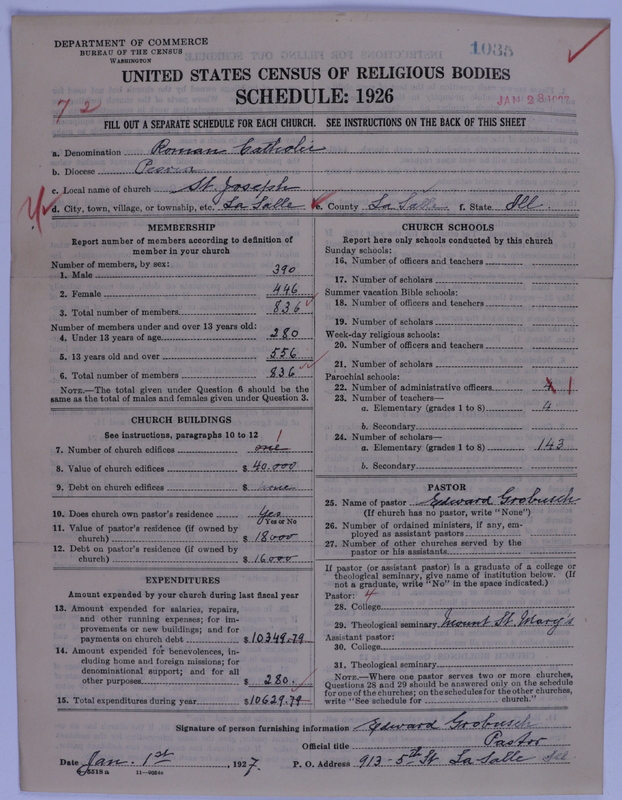 DEPARTMENT OF COMMERCE
BUREAU OF THE CENSUS
WASHINGTON
1035
UNITED STATES CENSUS OF RELIGIOUS BODIES
SCHEDULE: 1926
72
JAN 28 1927
FILL OUT A SEPARATE SCHEDULE FOR EACH CHURCH. SEE INSTRUCTIONS ON THE BACK OF THIS SHEET
a. Denomination Roman Catholic
b. Diocese Peoria
c. Local name of church St. Joseph
d. City, town, village, or township, etc. La Salle e. County La Salle f. State Ill.
MEMBERSHIP
Report number of members according to definition of
member in your church
Number of members, by sex:
1. Male 390
2. Female 446
3. Total number of members 836
Number of members under and over 13 years old:
4. Under 13 years of age 280
5. 13 years old and over 556
6. Total number of members 836
NOTE.—The total given under Question 6 should be
same as the total of males and females given under Question 3.
CHURCH BUILDINGS
See instructions, paragraphs 10 to 12
7. Number of church edifices one 1
8. Value of church edifices $ 40.000
9. Debt on church edifices $ none
10. Does church own pastor's residence Yes
Yes or No
11. Value of pastor's residence (if owned by
church) $ 18000
12. Debt on pastor's residence (if owned by
church) $ 16000
EXPENDITURES
Amount expended by your church during last fiscal year
13. Amount expended for salaries, repairs,
and other running expenses; for im-
provements or new buildings; and for
payments on church debt $ 10349.79
14. Amount expended for benevolences, in-
cluding home and foreign missions; for
denominational support; and for all
other purposes $ 280.
15. Total expenditures during year $ 10629.79
CHURCH SCHOOLS
Report here only schools conducted by this church
Sunday schools:
16. Number of officers and teachers
17. Number of scholars
Summer vacation Bible schools:
18. Number of officers and teachers
19. Number of scholars
Week-day religious schools:
20. Number of officers and teachers
21. Number of scholars
Parochial schools:
22. Number of administrative officers 1
23. Number of teachers—
a. Elementary (grades 1 to 8) 4
b. Secondary
24. Number of scholars—
a. Elementary (grades 1 to 8) 143
b. Secondary
PASTOR
25. Name of pastor Edward Grobusch
(If church has no pastor, write "None")
26. Number of ordained ministers, if any, em-
ployed as assistant pastors
27. Number of other churches served by the
pastor or his assistants
If pastor (or assistant pastor) is a graduate of a college or
theological seminary, give name of institution below. (If
not a graduate, write "No" in the space indicated.)
Pastor: 4
28. College
29. Theological seminary Mount St. Mary's
Assistant pastor:
30. College
31. Theological seminary
NOTE.—Where one pastor serves two or more churches,
Questions 28 and 29 should be answered only on the schedule
for one of the churches; on the schedules for the other churches,
write "See schedule for church."
Signature of person furnishing information Edward Grobusch
Official title Pastor
Date Jan. 1st, 1927. P. O. Address 913-5th St La Salle Ill
5518 a 11—9054a